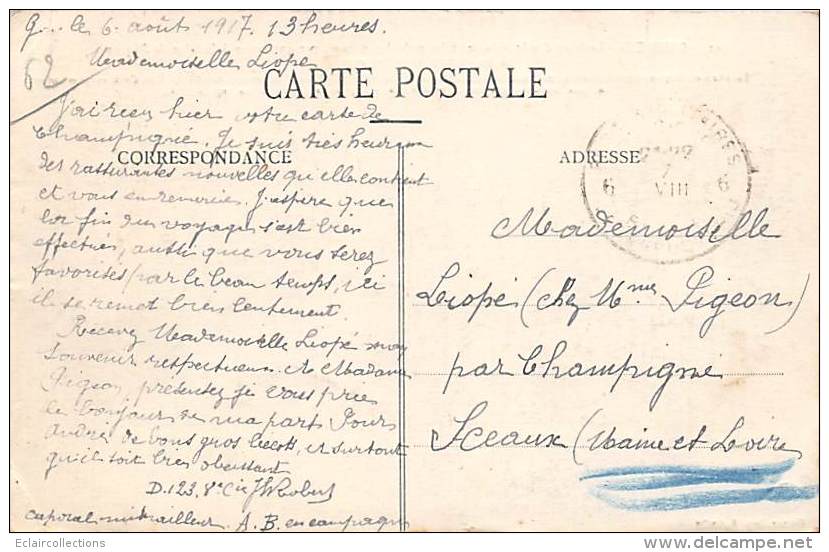 G... le 6 août 1917. 13 heures.
62
Mademoiselle Liopé
CARTE POSTALE
J'ai reçu hier votre carte de
Champigné. Je suis très heureux
CORRESPONDANCE
des rassurantes nouvelles qu'elle contient
et vous en remercie. J'espère que
la fin du voyage s'est bien
effectuée, aussi que vous serez
favorisés par le beau temps, ici
il se remet bien lentement.
Recevez Mademoiselle Liopé mon
souvenir respectueux. A Madame
Pigeon, présentez je vous prie
le bonjour de ma part. Pour
André de bons gros bécots, et surtout
qu'il soit bien obéissant
D. 123. 8e Cie
caporal mitrailleur A. B. en campagne
ADRESSE
6 VIII 6
Mademoiselle
Liopé (chez Mme Pigeon)
par Champigné
Sceaux (Maine et Loire
Eclaircollections
delcampe.net